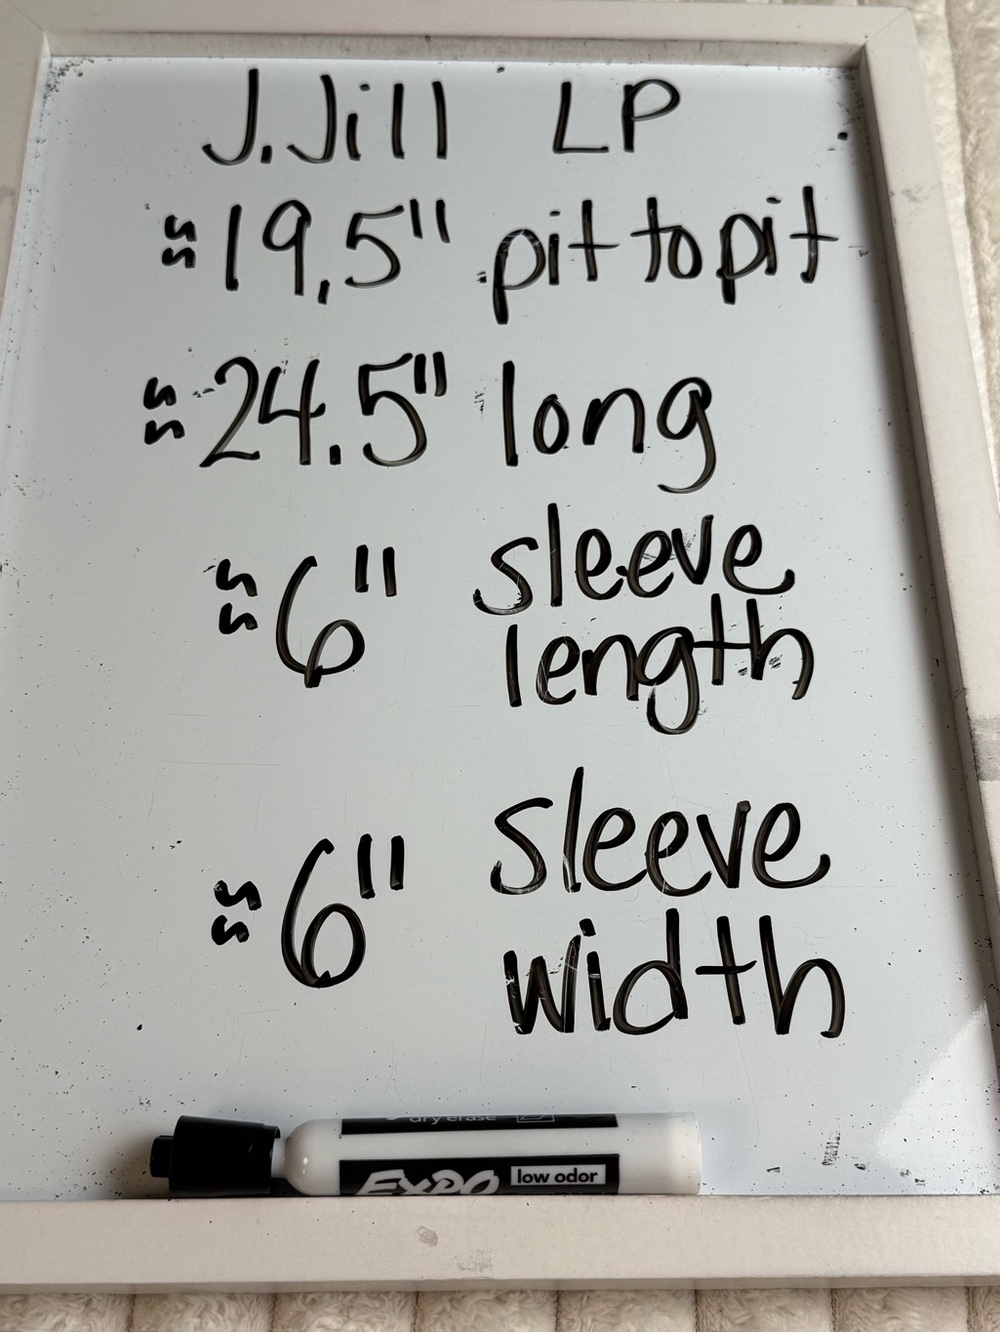 J.Jill LP
≈19.5" pit to pit
≈24.5" long
≈6" sleeve
length
≈6" sleeve
width
dry erase
EXPO low odor